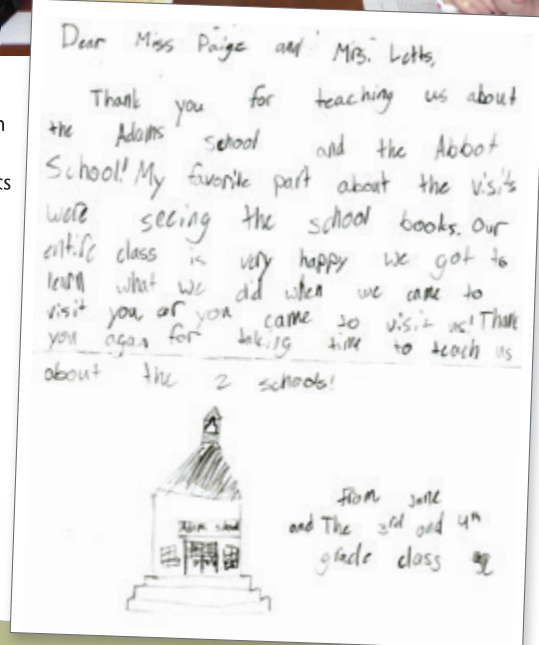 Dear Miss Paige and Mrs. Letts,
Thank you for teaching us about
the Adams school and the Abbot
School! My favorite part about the visits
were seeing the school books. Our
entire class is very happy we got to
learn what we did when we came to
visit you or you came to visit us! Thank
you again for taking time to teach us
about the 2 schools!
Adams school
From Jane
and The 3rd and 4th
grade class